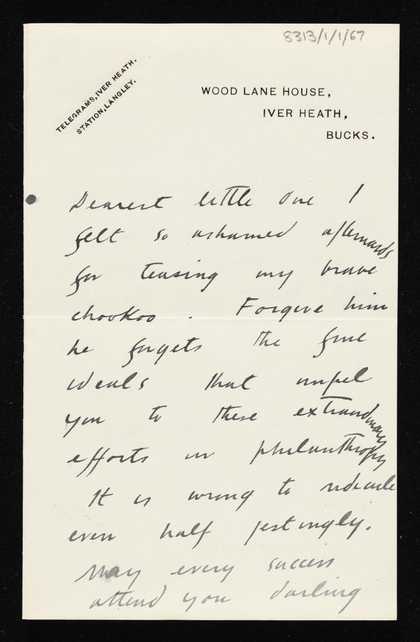 8313/1/1/67
TELEGRAMS, IVER HEATH.
STATION, LANGLEY.
WOOD LANE HOUSE,
IVER HEATH,
BUCKS.
Dearest little one I
felt so ashamed afterwards
for teasing my brave
chookoo. Forgive him
he forgets the fine
ideals that impel
you to these extraordinary
efforts in philanthropy
It is wrong to ridicule
even half jestingly.
May every success
attend you darling